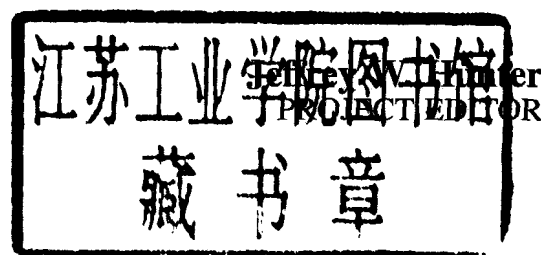 江苏工业学院图书馆
Jeffrey W. Hunter
PROJECT EDITOR
藏书章